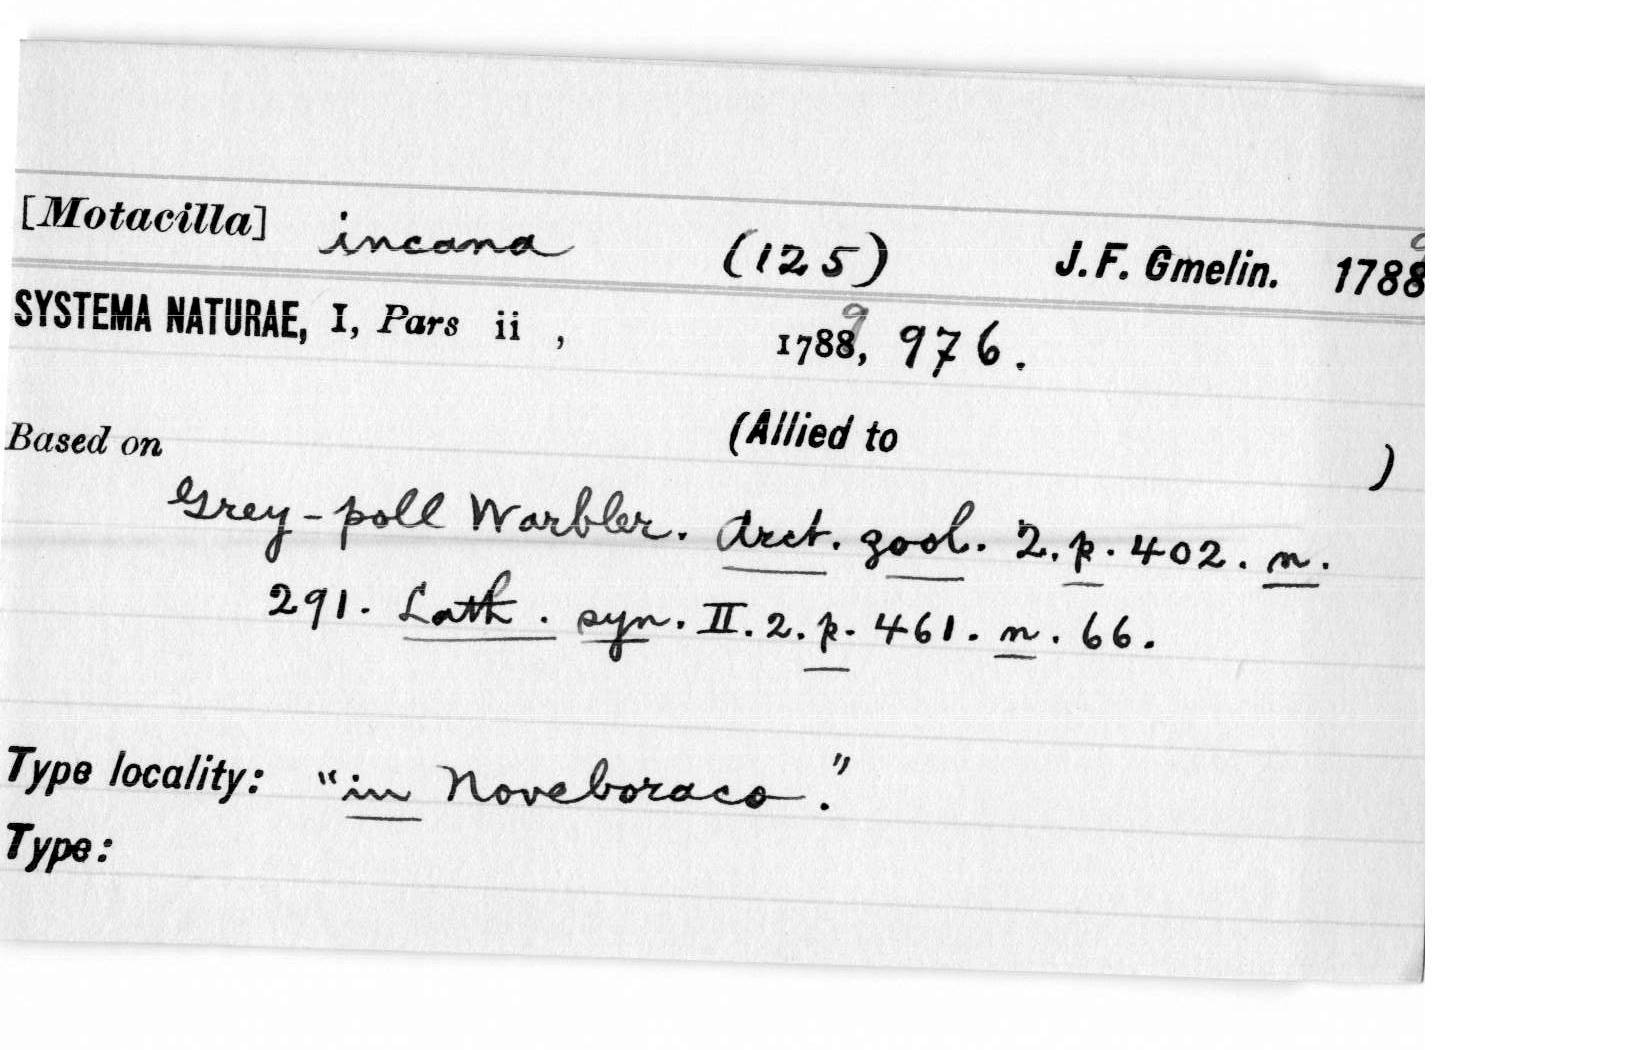 [Motacilla] incana (125) J. F. Gmelin. 1788 9
SYSTEMA NATURAE, I, Pars ii , 1788, 9 976.
Based on (Allied to )
Grey-poll Warbler. Arct. zool. 2. p. 402. n.
291. Lath. syn. II. 2. p. 461. n. 66.
Type locality: "in Noveboraco."
Type: